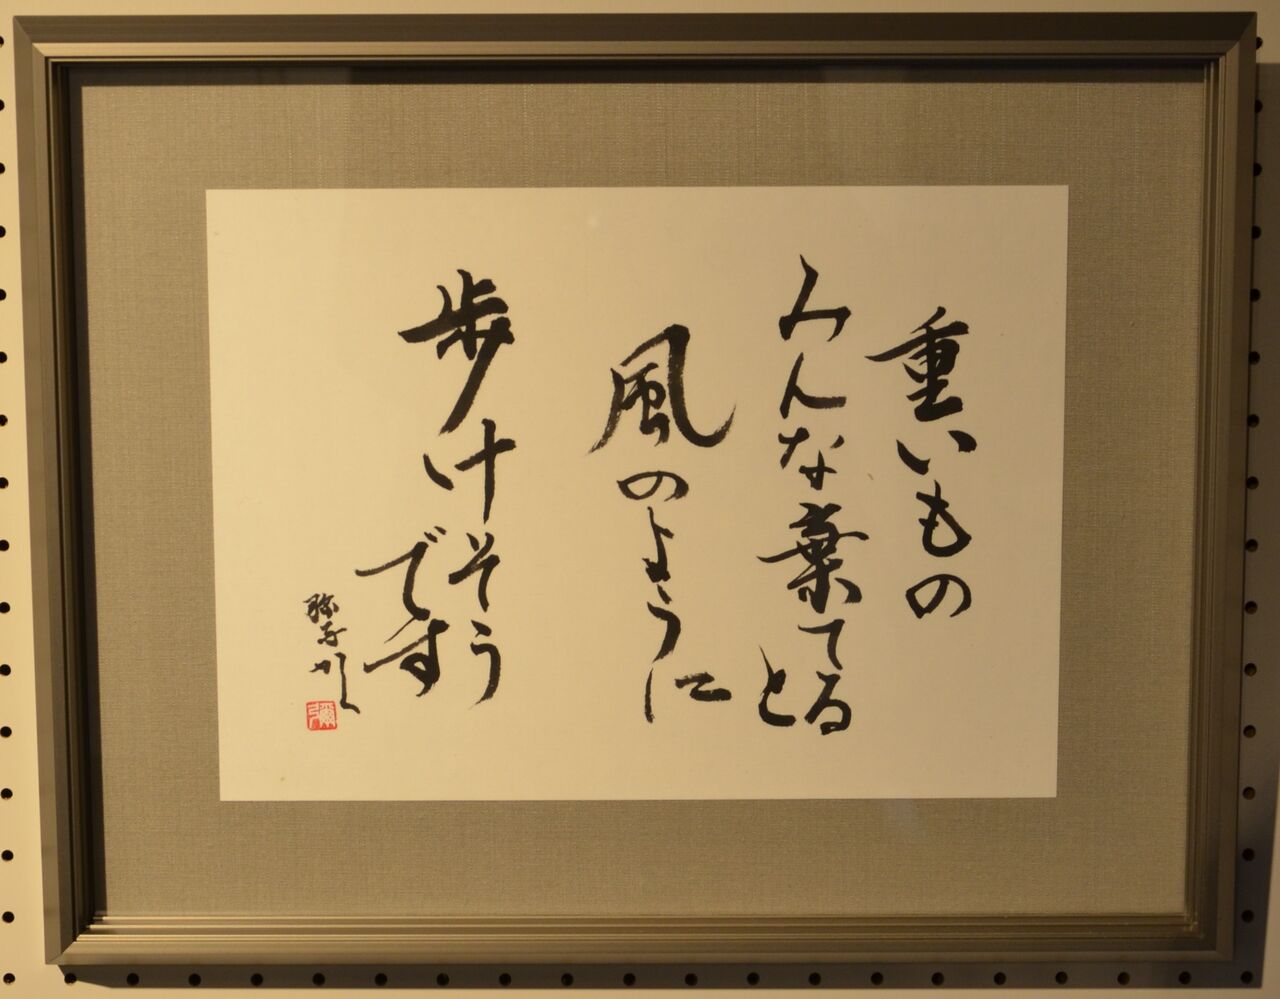 重いもの
みんな棄てると
風のように
歩けそうです
彌